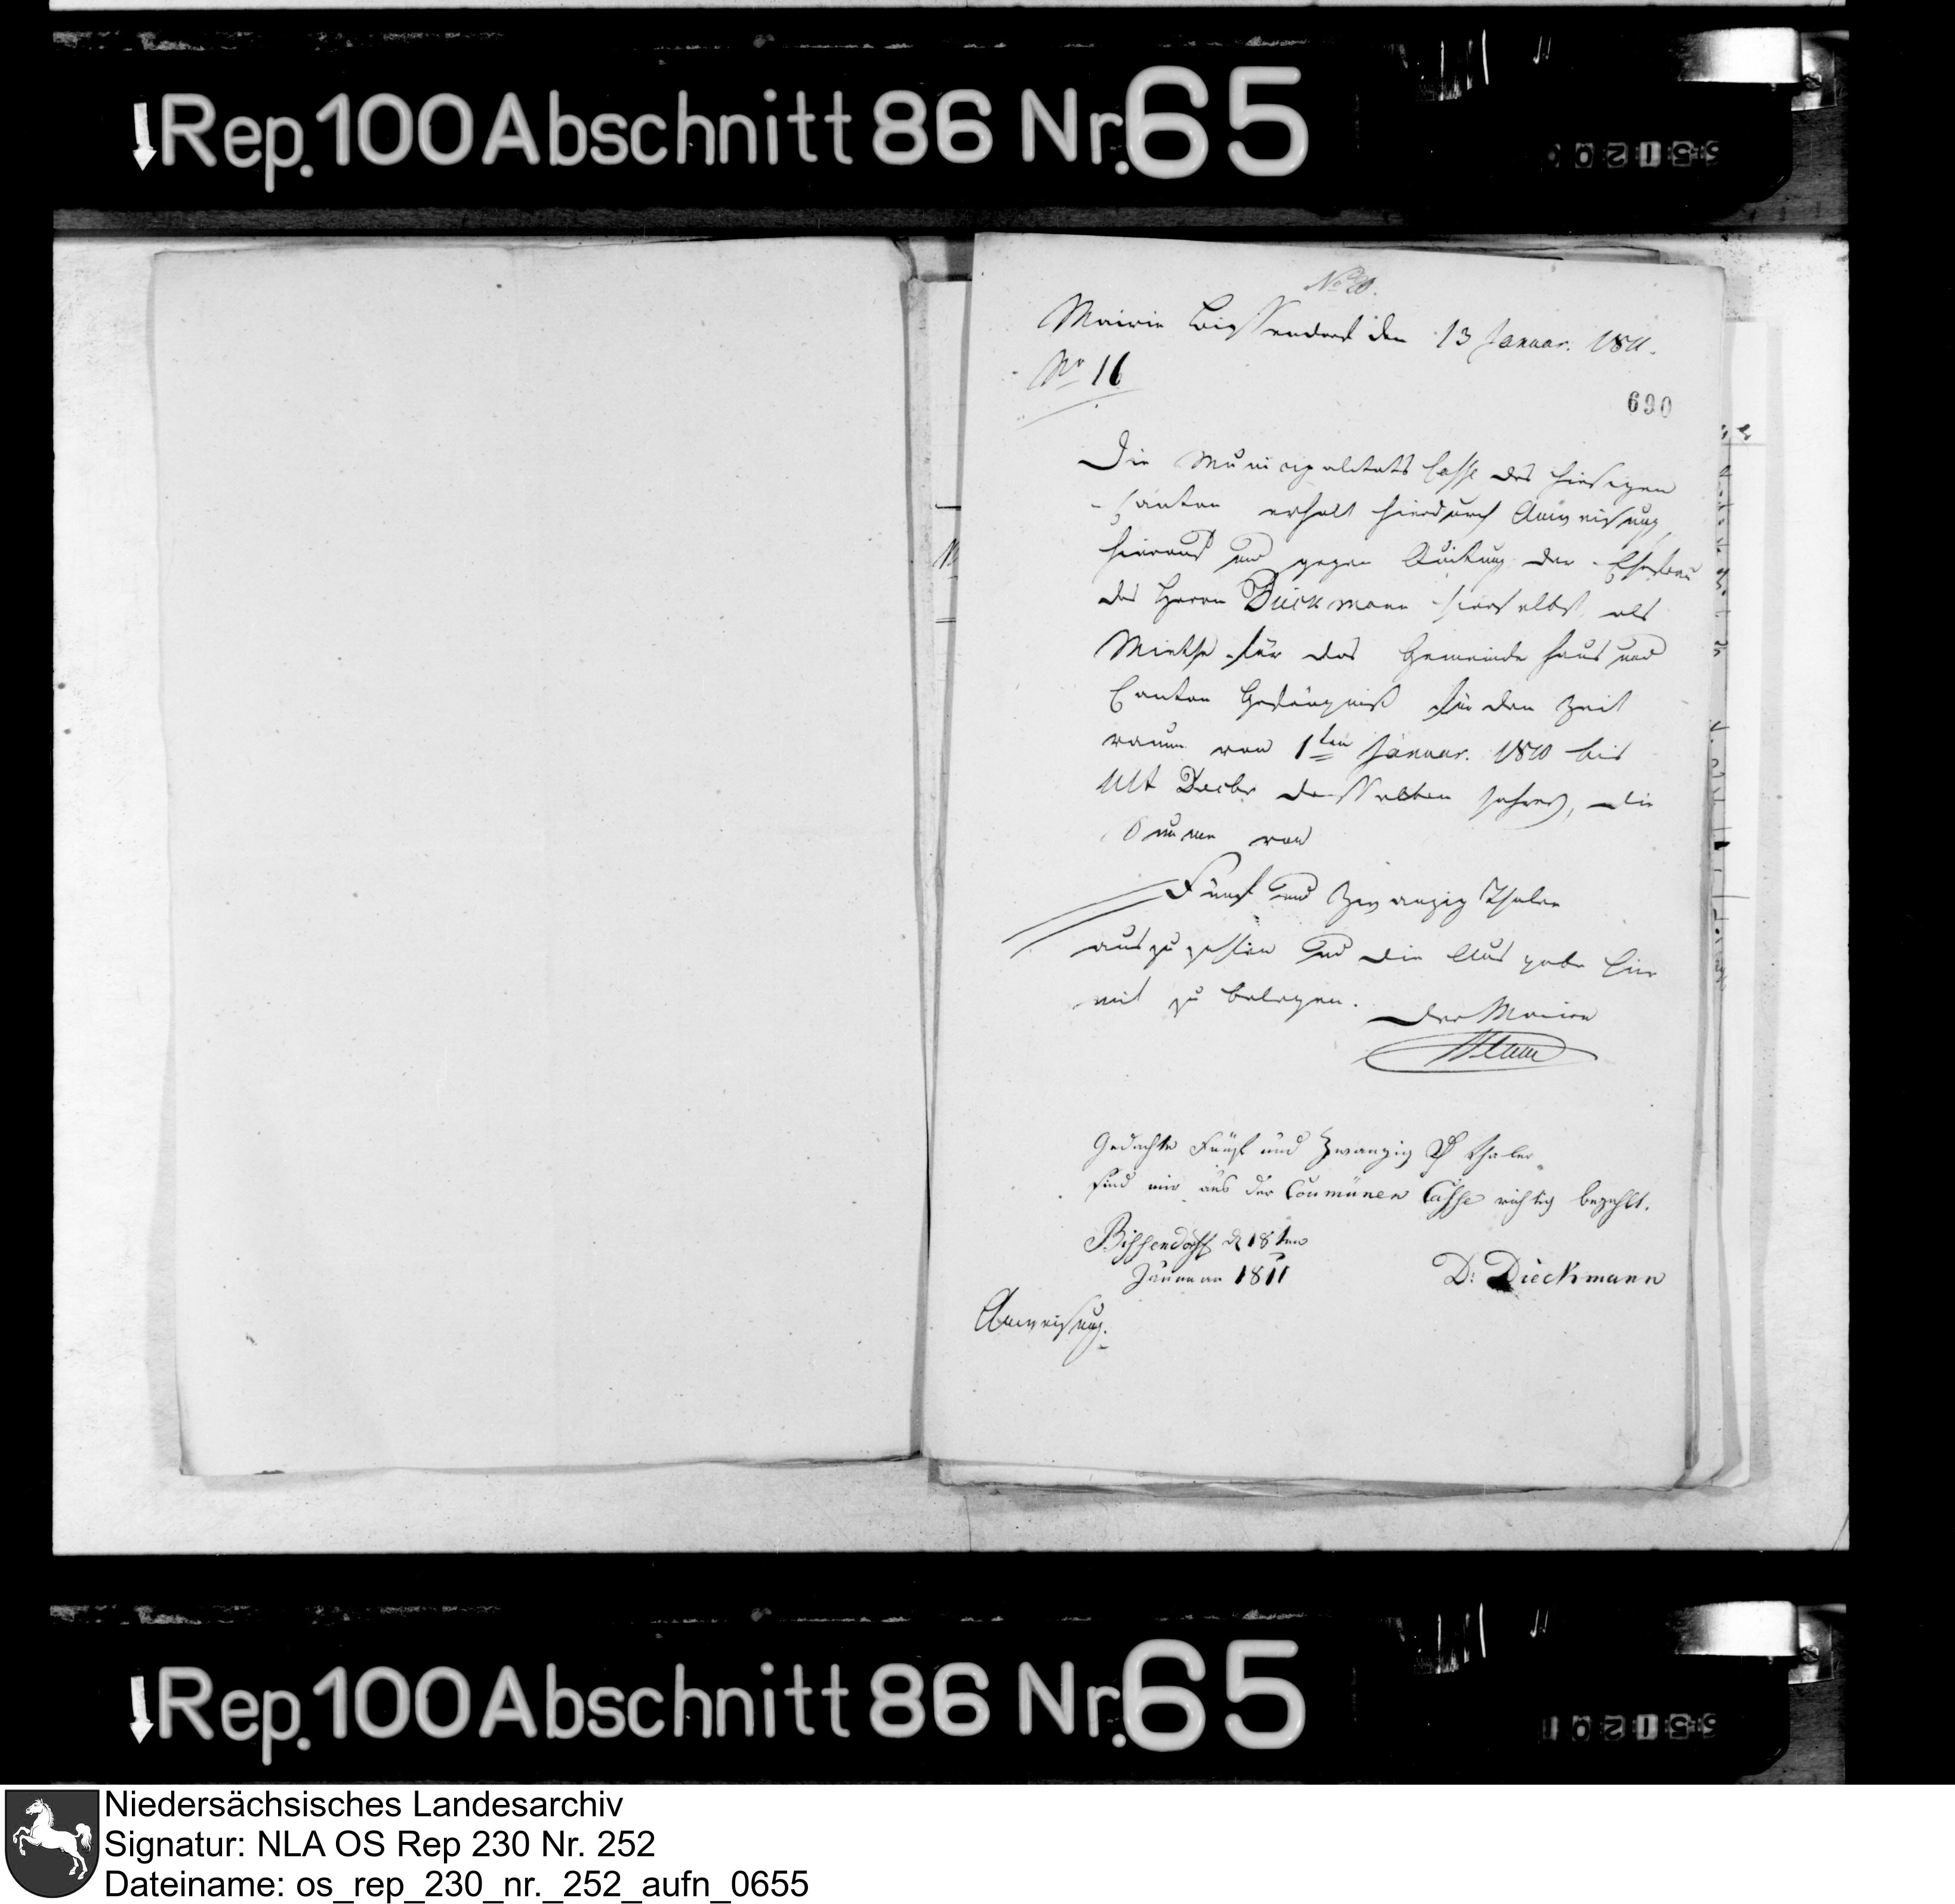 Rep. 100 Abschnitt 86 Nr. 65
No 20.
Mairie Bissendorf den 13 Januar. 1811.
No 16
690
Die Municipalitats Casse des hiesigen
Canton erhalt hierdurch Anweisung,
hieraus und gegen Quitung der Ehefrau
des Herrn Dieckmann hierselbst als
Miethe für das Gemeinde Haus und
Canton Gefängniß für den Zeit
raum von 1ten Januar. 1810 bis
Ult Decbr desselben Jahres, die
Summe von
Fünf und Zwanzig Thaler
auszuzahlen und die Ausgabe hier
mit zu belegen.
Der Maire
Gedachte Fünf und Zwanzig Thaler
sind mir aus der Communen Casse richtig bezahlt.
Bissendorff d 18ten
Januar 1811
D: Dieckmann
Anweisung.
Rep. 100 Abschnitt 86 Nr. 65
Niedersächsisches Landesarchiv
Signatur: NLA OS Rep 230 Nr. 252
Dateiname: os_rep_230_nr._252_aufn_0655